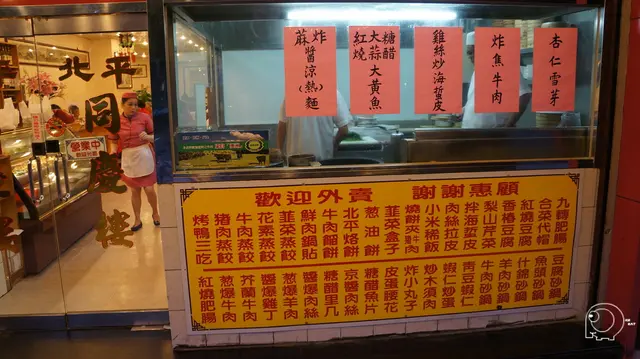 北平
同慶樓
營業中
杏仁雪芽
炸焦牛肉
雞絲炒海蜇皮
糖醋
大蒜大黃魚
紅燒
炸
麻醬涼(熱)麵
歡迎外賣 謝謝惠顧
九轉肥腸
合菜代帽
紅燒豆腐
香椿豆腐
梨山芹菜
拌海蜇皮
肉絲拉皮
小米稀飯
燒餅夾牛肉
韮菜盒子
葱油餅
北平烙餅
牛肉餡餅
鮮肉鍋貼
韮菜蒸餃
花素蒸餃
牛肉蒸餃
豬肉蒸餃
烤鴨三吃
豆腐砂鍋
魚頭砂鍋
什錦砂鍋
牛肉砂鍋
青豆蝦仁
蝦仁炒蛋
炒木須肉
炸小丸子
皮蛋腰花
糖醋魚片
京醬肉絲
糖醋里几
葱爆羊肉
醬爆雞丁
芥蘭牛肉
葱爆牛肉
紅燒肥腸